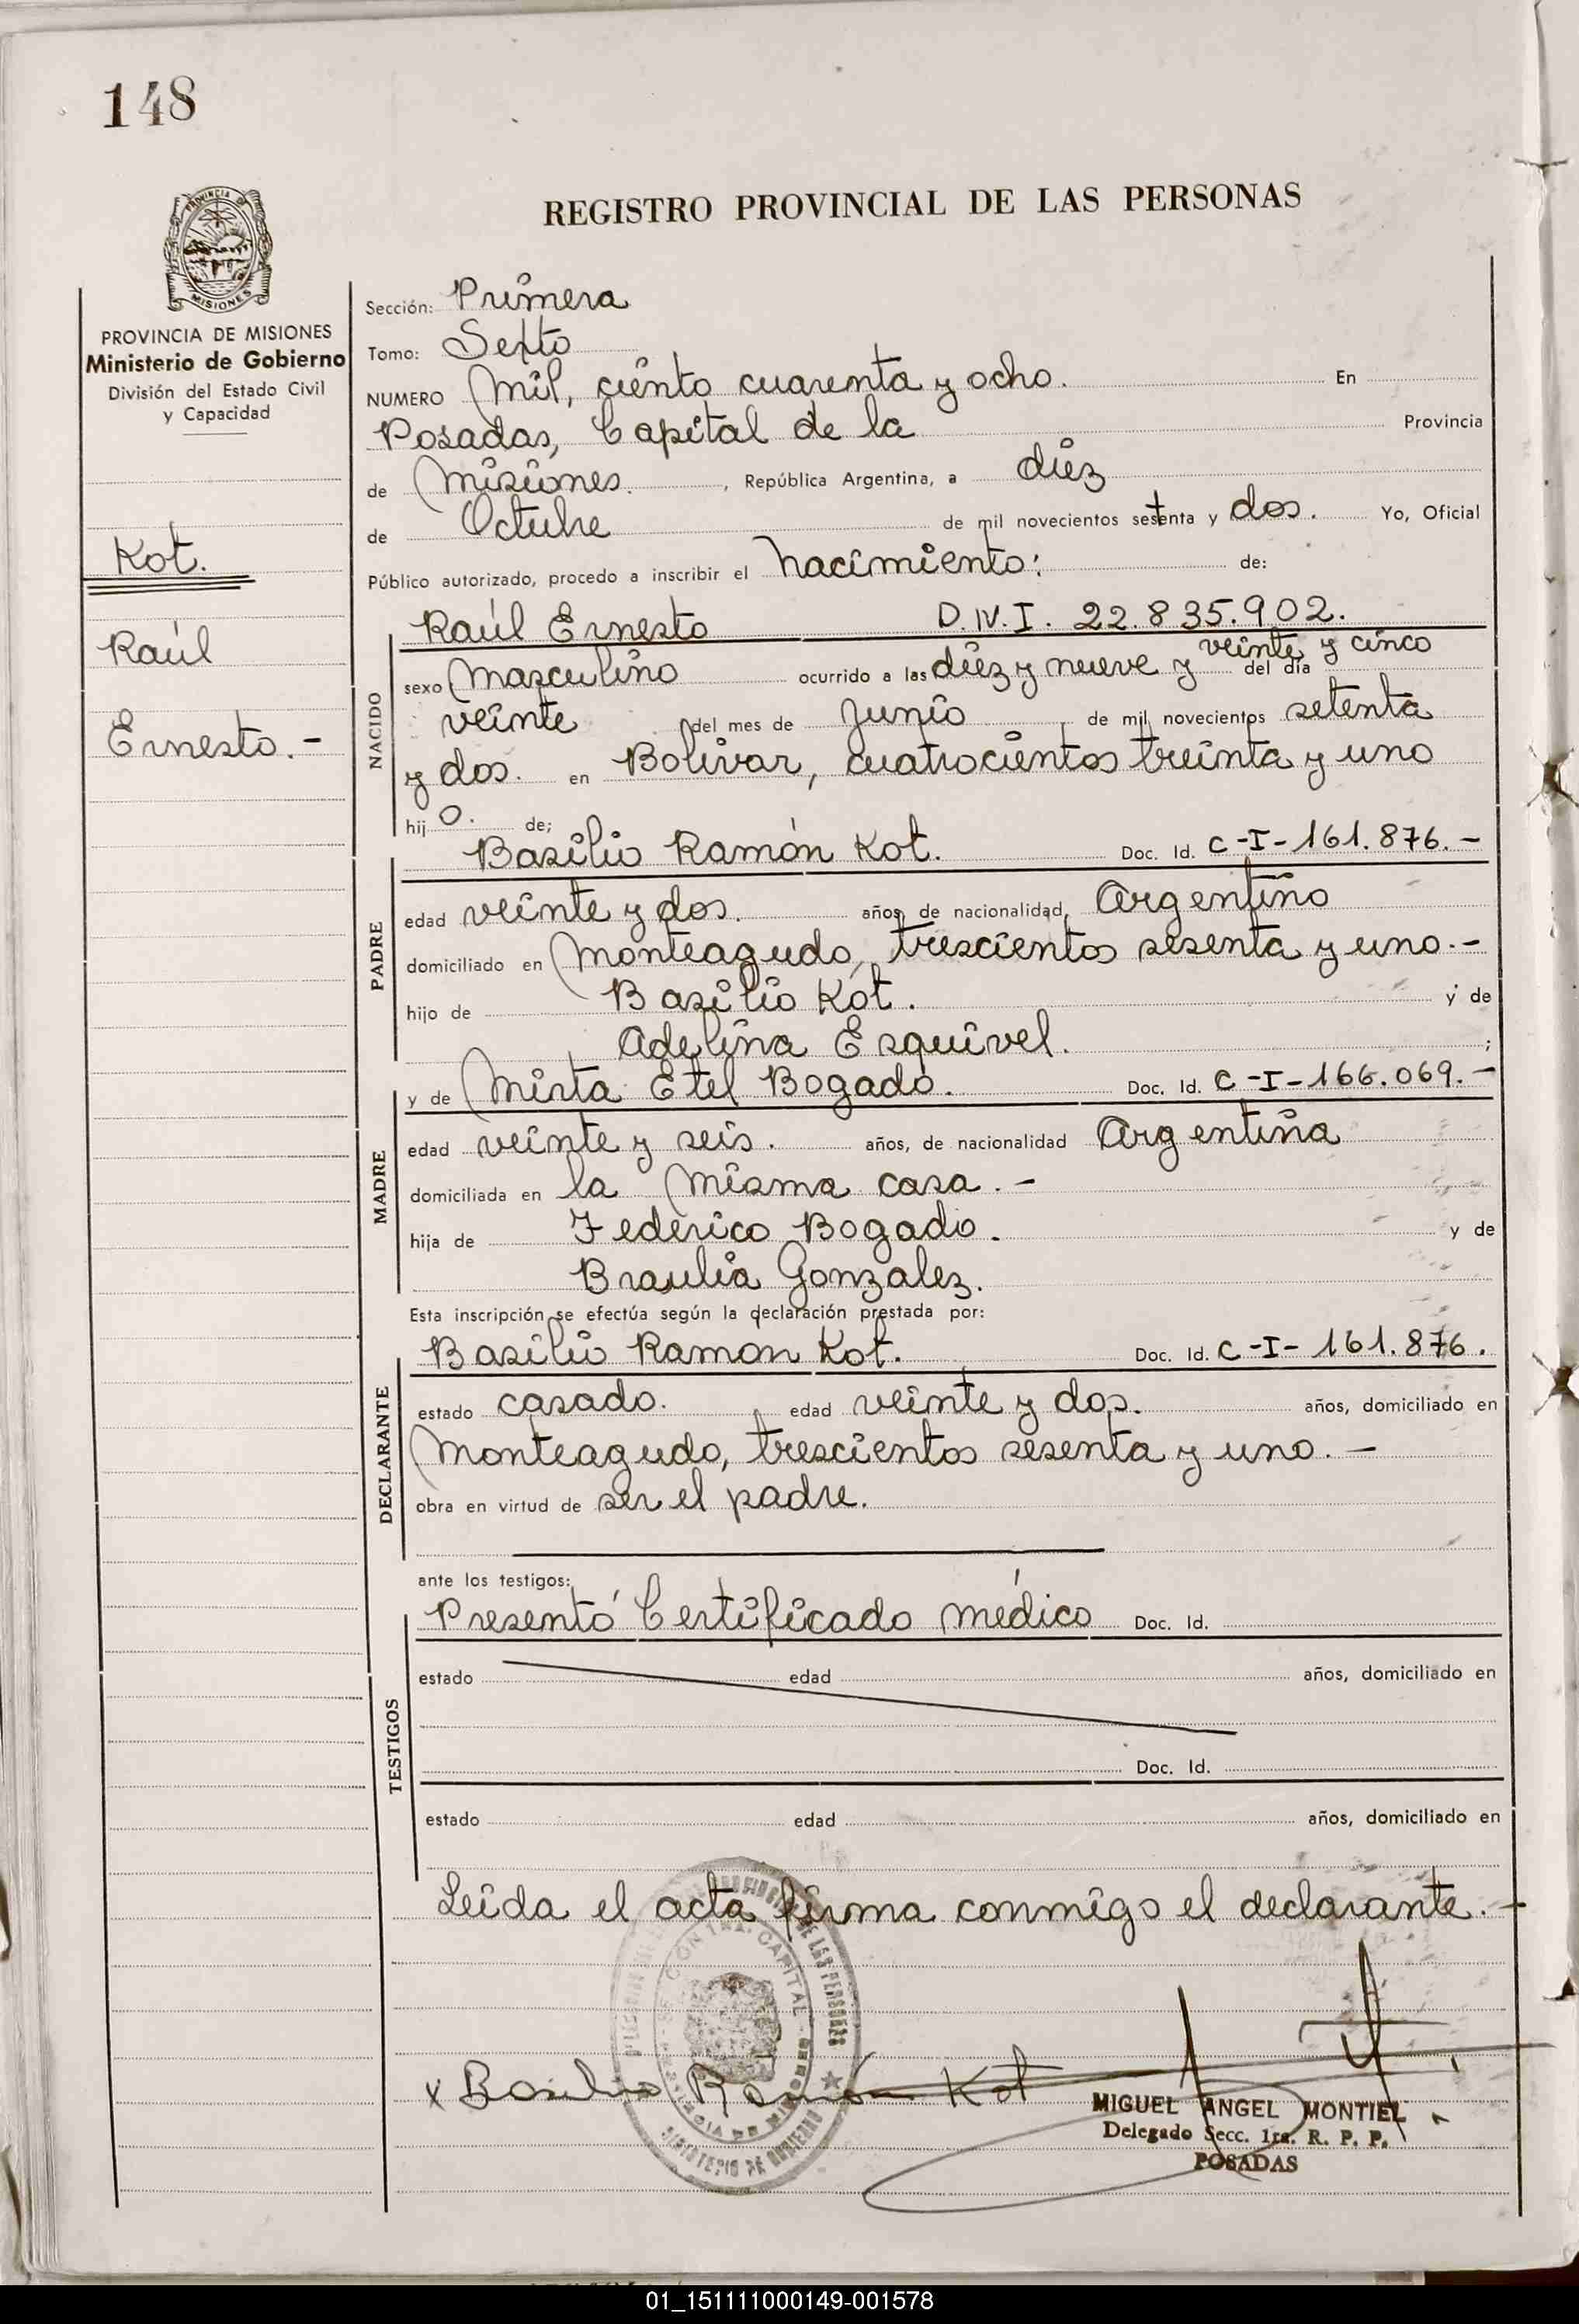 148
REGISTRO PROVINCIAL DE LAS PERSONAS
PROVINCIA DE MISIONES
Ministerio de Gobierno
División del Estado Civil
y Capacidad
Kot.
Raúl
Ernesto.-
Sección: Primera
Tomo: Sexto
NUMERO Mil, ciento cuarenta y ocho. En
Posadas, Capital de la Provincia
de Misiones. , República Argentina, a diez
de Octubre de mil novecientos setenta y dos. Yo, Oficial
Público autorizado, procedo a inscribir el nacimiento: de:
Raúl Ernesto D.N.I. 22.835.902.
NACIDO
sexo Masculino ocurrido a las diez y nueve y veinte y cinco del día
veinte del mes de Junio , de mil novecientos setenta
y dos. en Bolivar, cuatrocientos treinta y uno
hij o. de;
Basilio Ramón Kot. Doc. Id. C-I-161.876.-
PADRE
edad veinte y dos. años, de nacionalidad, Argentino
domiciliado en Monteagudo, trescientos sesenta y uno.-
hijo de Basilio Kot. y de
Adelina Esquivel. ;
y de Mirta Etel Bogado. Doc. Id. C-I-166.069.-
MADRE
edad veinte y seis. años, de nacionalidad Argentina
domiciliada en la misma casa.-
hija de Federico Bogado. y de
Braulia Gonzalez.
Esta inscripción se efectúa según la declaración prestada por:
Basilio Ramon Kot. Doc. Id. C-I-161.876.
DECLARANTE
estado casado. edad veinte y dos. años, domiciliado en
Monteagudo, trescientos sesenta y uno.-
obra en virtud de ser el padre.
ante los testigos:
Presentó Certificado médico Doc. Id.
TESTIGOS
estado edad años, domiciliado en
Doc. Id.
estado edad años, domiciliado en
Leida el acta firma conmigo el declarante.-
x Basilio Ramón Kot
MIGUEL ANGEL MONTIEL
Delegado Secc. 1ra. R. P. P.
POSADAS
01_151111000149-001578